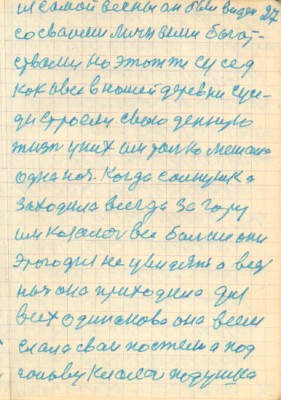 и самой весны он был виден 27
со своими личными богат-
ствами но этот же сусед
как и все в нашей деревни сусе-
ди строели свою денную
жизн у них им толко мешала
одна ноч. Когда солнушка
заходила всегда за гору
им казалос все болше они
этого дня не увидять а вед
ноч она приходила для
всех одинакова она всем
слала свои постели а под
голову клала подушка